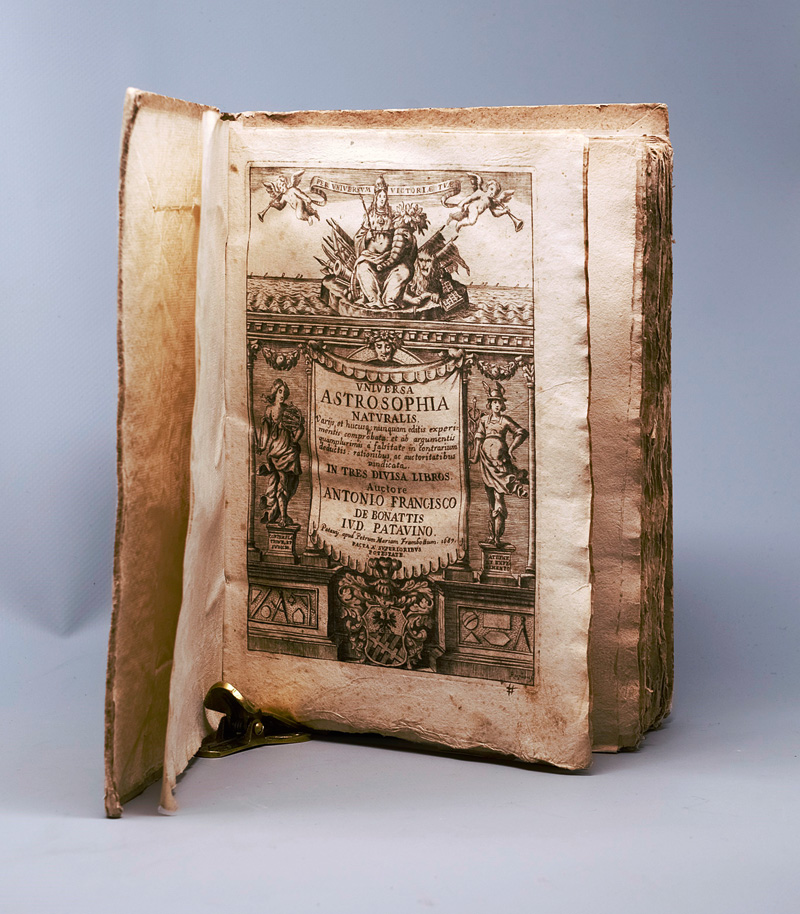 PER VNIVERSVM VICTORIÆ TVÆ
VNIVERSA
ASTROSOPHIA
NATVRALIS.
Varijs, et hucusq; nunquam editis experi-
mentis comprobata, et ab argumentis
quamplurimis a falsitate in contrarium
deductis rationibus, ac auctoritatibus
vindicata.
IN TRES DIVISA LIBROS.
Auctore
ANTONIO FRANCISCO
DE BONATTIS
IVD. PATAVINO.
Patavij, apud Petrum Mariam Frambottum. 1687.
FACTA A' SVPERIORIBVS
POTESTATE.